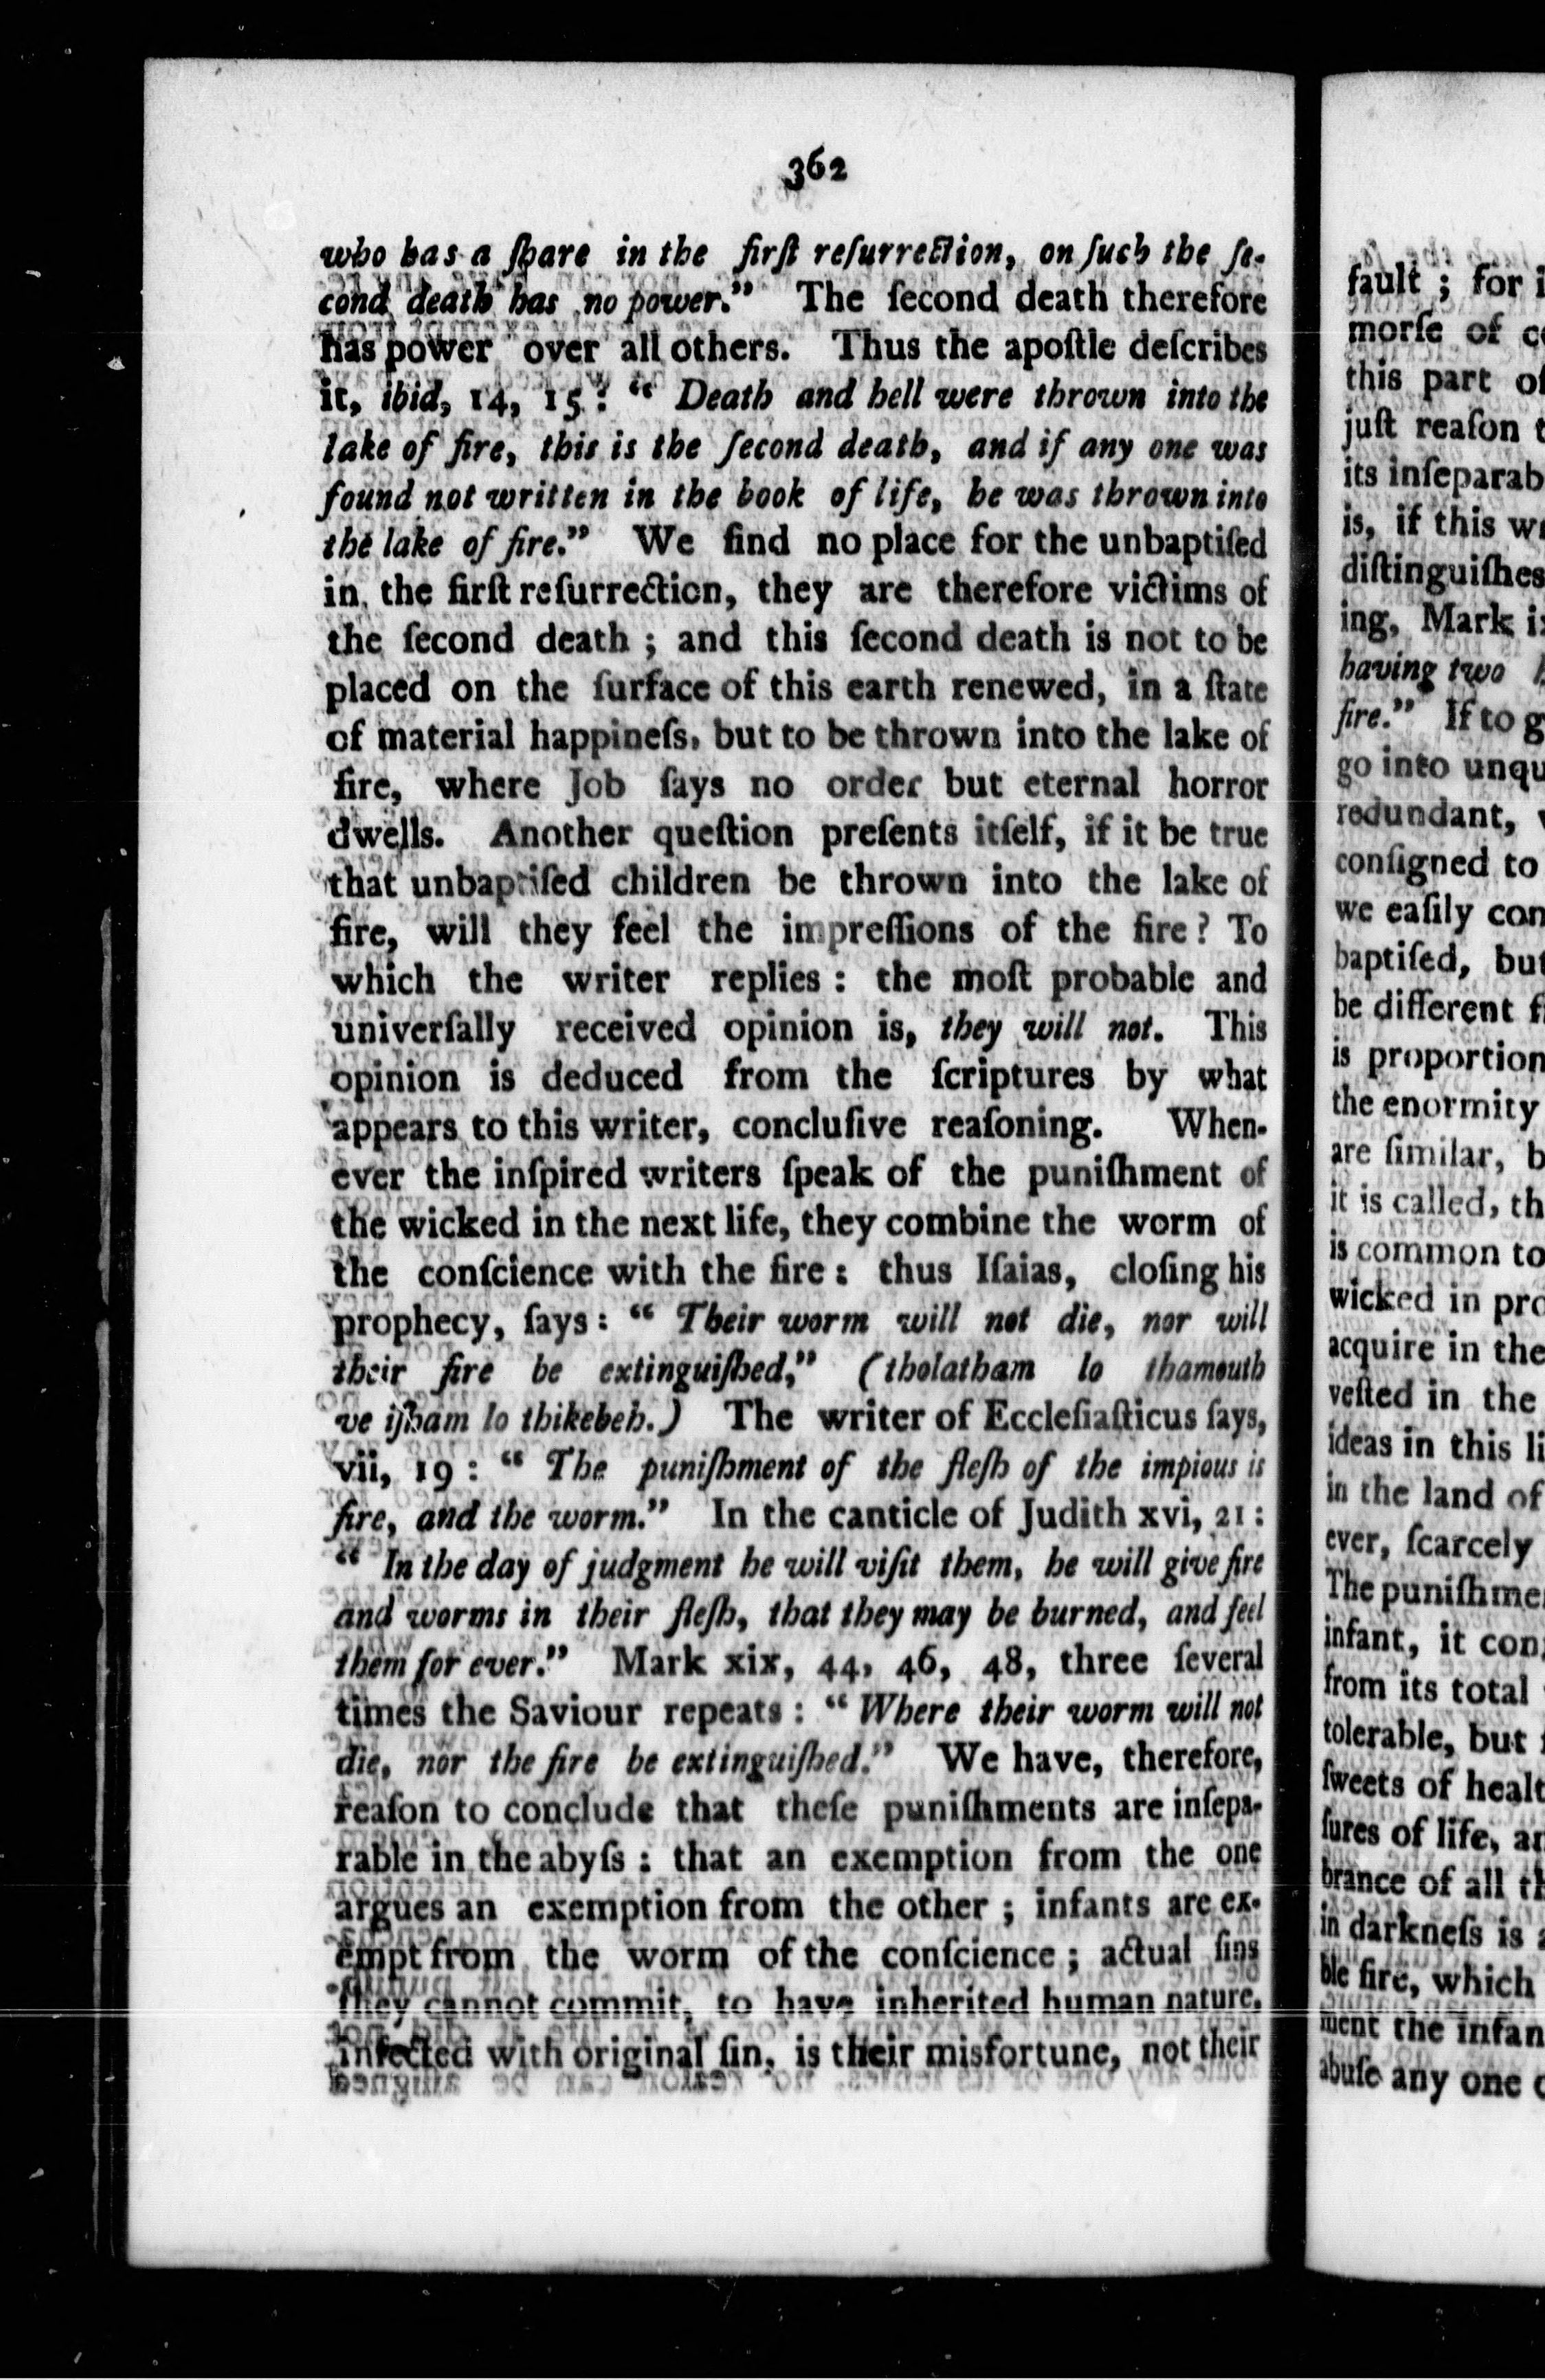 362
who has a ſhare in the firſt reſurrection, on ſuch the ſe-
cond death has no power." The ſecond death therefore
has power over all others. Thus the apoſtle deſcribes
it, ibid, 14, 15 : " Death and hell were thrown into the
lake of fire, this is the ſecond death, and if any one was
found not written in the book of life, he was thrown into
the lake of fire." We find no place for the unbaptiſed
in the firſt reſurrection, they are therefore victims of
the ſecond death ; and this ſecond death is not to be
placed on the ſurface of this earth renewed, in a ſtate
of material happineſs, but to be thrown into the lake of
fire, where Job ſays no order but eternal horror
dwells. Another queſtion preſents itſelf, if it be true
that unbaptiſed children be thrown into the lake of
fire, will they feel the impreſſions of the fire ? To
which the writer replies : the moſt probable and
univerſally received opinion is, they will not. This
opinion is deduced from the ſcriptures by what
appears to this writer, concluſive reaſoning. When-
ever the inſpired writers ſpeak of the puniſhment of
the wicked in the next life, they combine the worm of
the conſcience with the fire : thus Iſaias, cloſing his
prophecy, ſays : " Their worm will not die, nor will
their fire be extinguiſhed," (tholatham lo thamouth
ve iſham lo thikebeh.) The writer of Eccleſiaſticus ſays,
vii, 19 : " The puniſhment of the fleſh of the impious is
fire, and the worm." In the canticle of Judith xvi, 21 :
" In the day of judgment he will viſit them, he will give fire
and worms in their fleſh, that they may be burned, and feel
them for ever." Mark xix, 44, 46, 48, three ſeveral
times the Saviour repeats : " Where their worm will not
die, nor the fire be extinguiſhed." We have, therefore,
reaſon to conclude that theſe puniſhments are inſepa-
rable in the abyſs : that an exemption from the one
argues an exemption from the other ; infants are ex-
empt from the worm of the conſcience ; actual ſins
they cannot commit, to have inherited human nature,
infected with original ſin, is their misfortune, not their
fault ; for i
morſe of c
this part of
juſt reaſon t
its inſeparab
is, if this w
diſtinguiſhes
ing, Mark i
having two
fire." If to g
go into unqu
redundant,
conſigned to
we eaſily con
baptiſed, but
be different f
is proportion
the enormity
are ſimilar, b
it is called, th
is common to
wicked in pro
acquire in the
veſted in the
ideas in this li
in the land of
ever, ſcarcely
The puniſhme
infant, it con
from its total
tolerable, but
ſweets of healt
ſures of life, an
brance of all th
in darkneſs is a
ble fire, which
ment the infan
abuſe any one